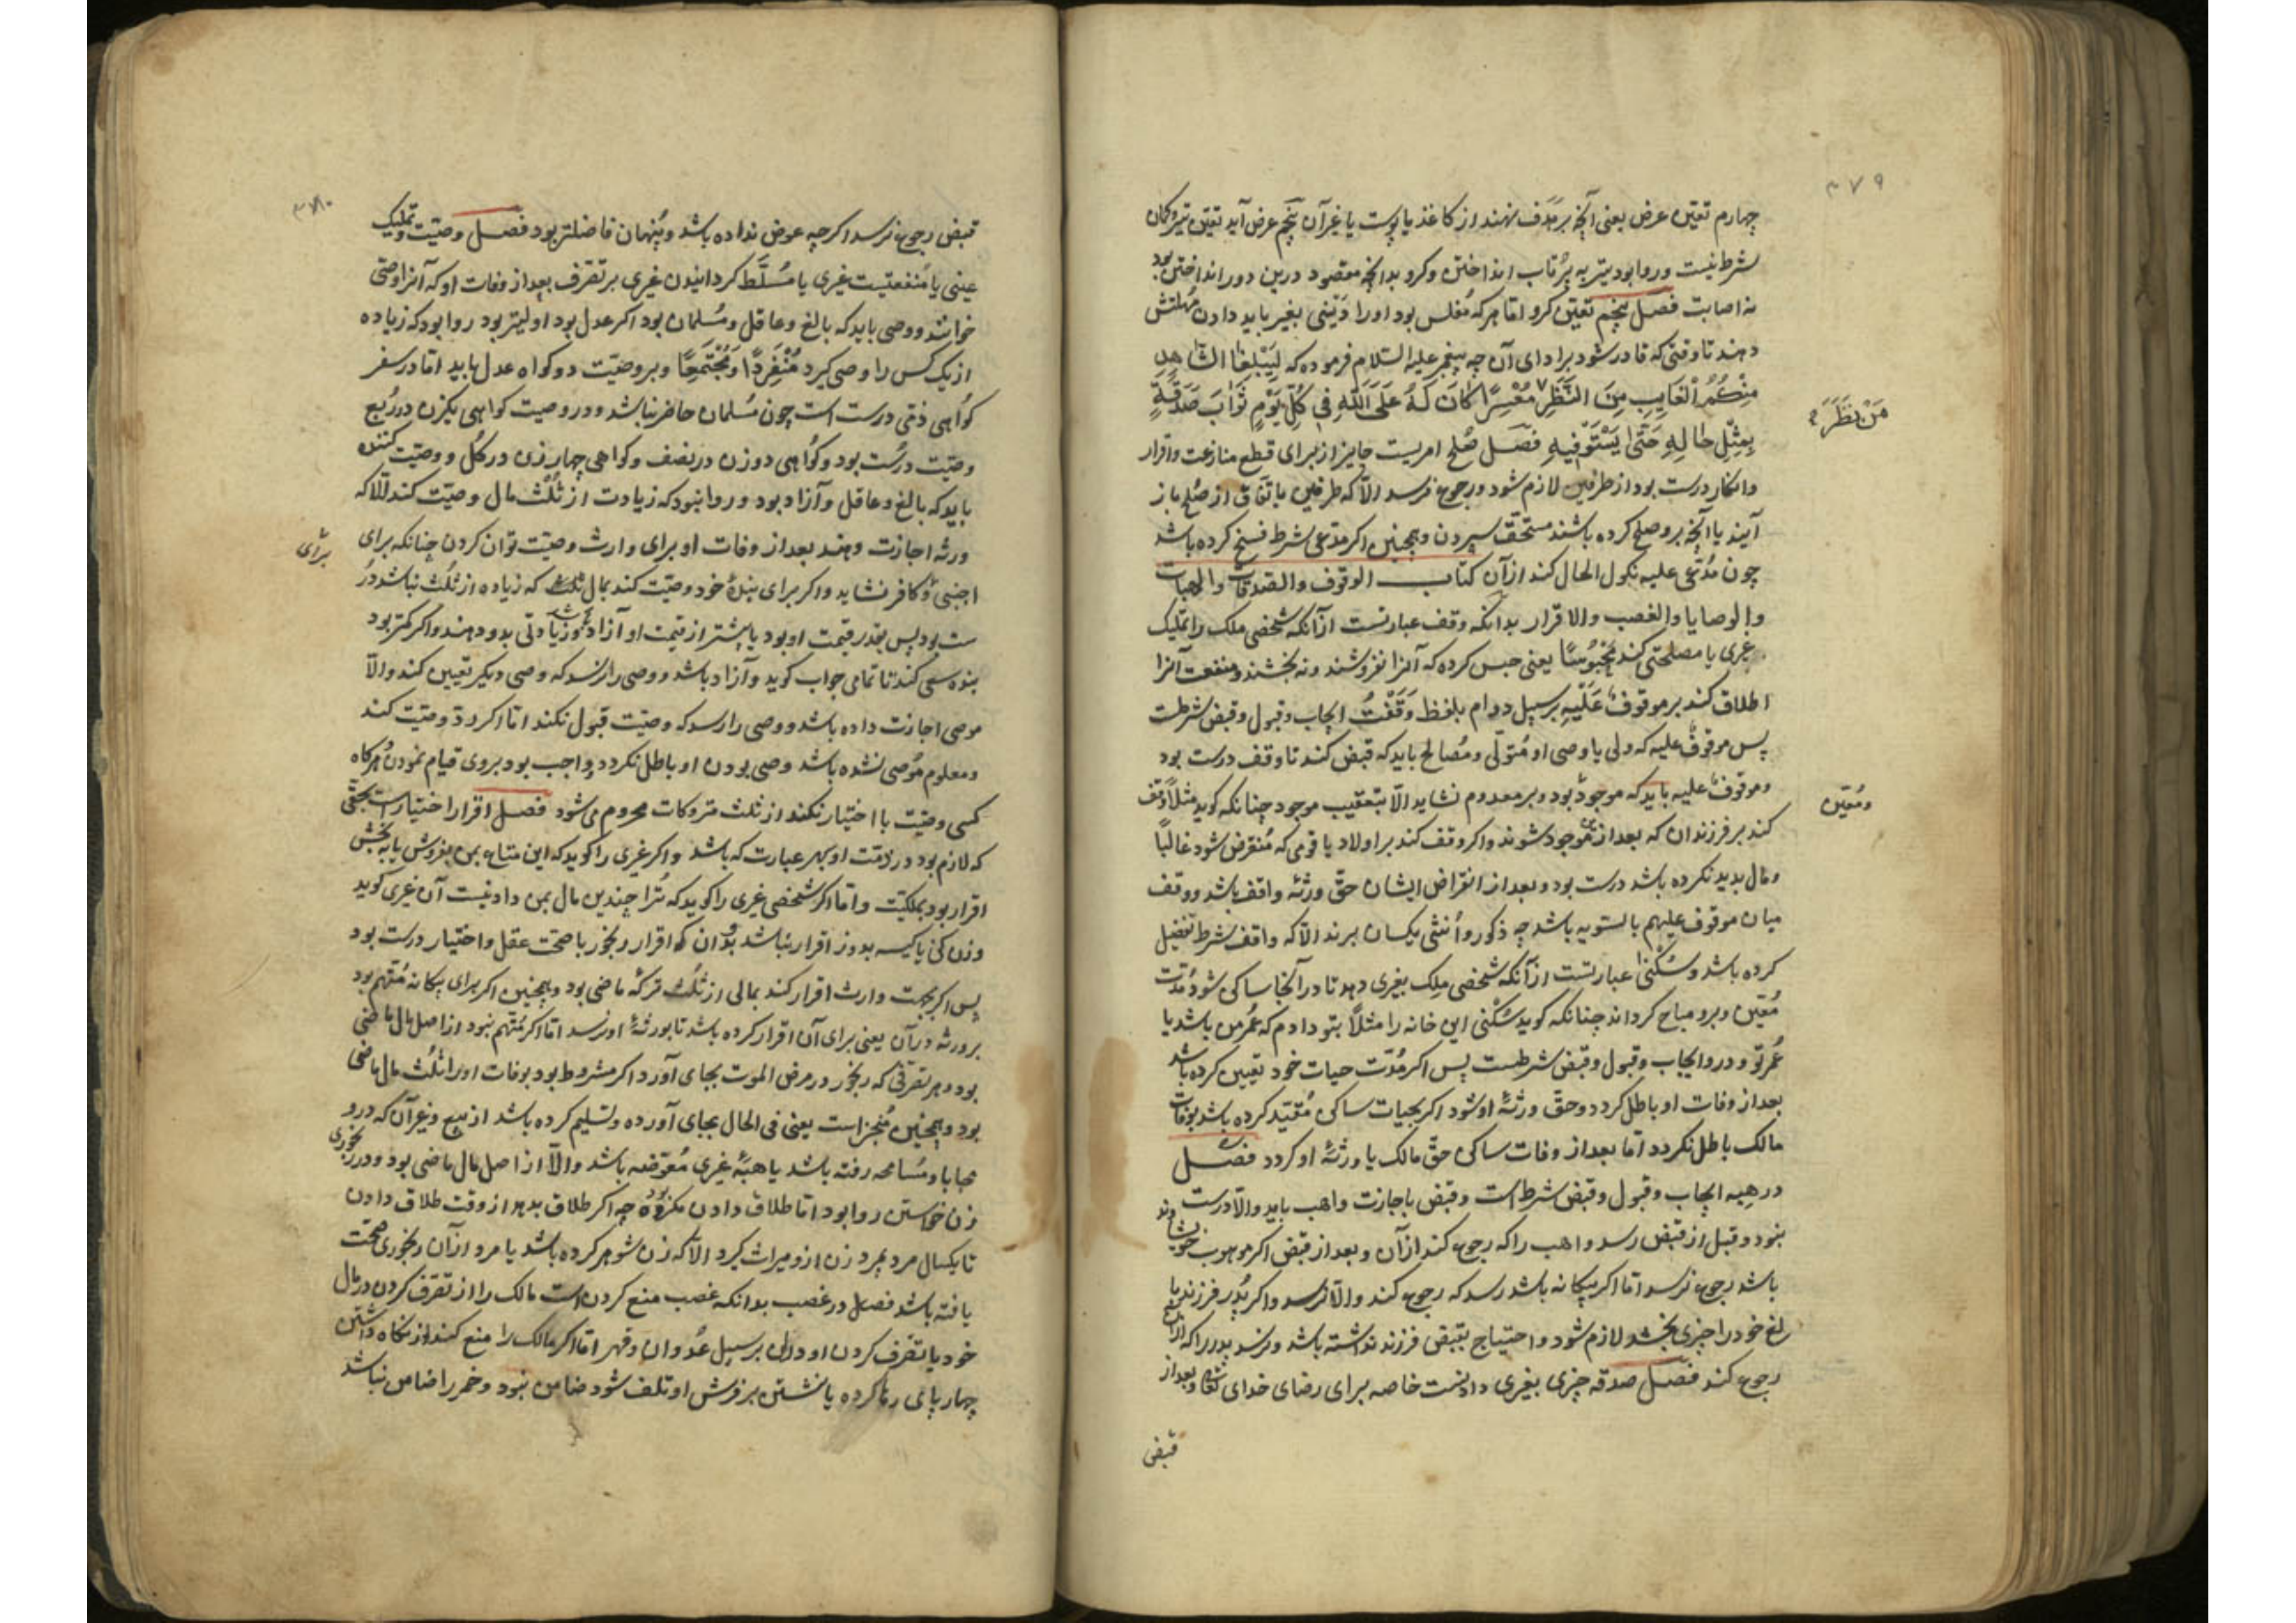 ۳۷۹
چهارم تعیین عرض یعنی آنچه بر هدف نهند از کاغذ یا پوست یا غیر آن پنجم عرض آید تعیین تیر و کمان
شرط نیست و روا بود تیر به پرتاب انداختن و کرو بدانچه مقصود درین دور انداختن بود
نه اصابت فصل پنجم تعیین کرو اما هر که مفلس بود او را دینی بغیر باید دادن مهلتش
دهند تا وقتی که قادر شود بر ادای آن چه پیغمبر علیه السلام فرموده که لیبلغا الشاهد
منکم الغایب من النظر معسرا کان له علی الله فی کل یوم ثواب صدقة
من نظر
بمثل ماله حتی یستوفیه فصل صلح امریست جایز از برای قطع منازعت و اقرار
و انکار درست بود از طرفین لازم شود و رجوع نرسد الا که طرفین باتفاق از صلح باز
آیند یا آنچه برو صلح کرده باشند مستحق سپردن و همچنین اگر مدعی شرط فسخ کرده باشد
چون مدعی علیه نکول الحال کند از آن کتاب الوقوف والصدقات والهبات
والوصایا والغصب والاقرار بدانکه وقف عبارتست از آنکه شخصی ملک را تملیک
غیری یا مصلحتی کند محبوسا یعنی حبس کرده که آنرا نفروشند و نه بخشند و منفعت آنرا
اطلاق کند بر موقوف علیه بر سبیل دوام بلفظ وقفت ایجاب و قبول و قبض شرطست
پس موقوف علیه که ولی یا وصی او متولی و مصالح باید که قبض کند تا وقف درست بود
و موقوف علیه باید که موجود بود و بر معدوم نشاید الا بتعقیب موجود چنانکه گوید مثلا وقف
و معین
کند بر فرزندان که بعد ازین موجود شوند و اگر وقف کند بر اولاد یا قومی که منقرض شود غالبا
و مال بدید نکرده باشد درست بود و بعد از انقراض ایشان حق ورثهٔ واقف باشد و وقف
میان موقوف علیهم بالسویه باشد چه ذکور و أنثی یکسان برند الا که واقف شرط تفضیل
کرده باشد و سکنی عبارتست از آنکه شخصی ملک بغیری دهد تا در آنجا ساکن شود مدت
معین و برو مباح گرداند چنانکه گوید سکنی این خانه را مثلا بتو دادم که عمر من باشد یا
عمر تو و درو ایجاب و قبول و قبض شرطست پس اگر مدت حیات خود تعیین کرده باشد
بعد از وفات او باطل گردد و حق ورثهٔ او شود اگر بحیات ساکن مقید کرده باشد بوفات
مالک باطل نگردد اما بعد از وفات ساکن حق مالک یا ورثهٔ او گردد فصل
در هبه ایجاب و قبول و قبض شرط است و قبض باجازت واهب باید والا درست
نبود و قبل از قبض رسد واهب را که رجوع کند از آن و بعد از قبض اگر موهوب خویشاوند
باشد رجوع نرسد اما اگر بیگانه باشد رسد که رجوع کند والا نرسد و اگر پدر فرزند نا
بالغ خود را چیزی بخشد لازم شود و احتیاج بقبض فرزند نداشته باشد و نرسد پدر را که از آن
رجوع کند فصل صدقه چیزی بغیری دادنست خاصه برای رضای خدای تعالی و بعد از
قبض
۳۸۰
قبض رجوع نرسد اگر چه عوض نداده باشد و پنهان فاضلتر بود فصل وصیت تملیک
عینی یا منفعتیست غیری یا مسلط گردانیدن غیری بر تصرف بعد از وفات او که آنرا وصی
خوانند و وصی باید که بالغ و عاقل و مسلمان بود اگر عدل بود اولیتر بود روا بود که زیاده
از یک کس را وصی گیرد منفردا و مجتمعا و بر وصیت دو گواه عدل باید اما در سفر
گواهی ذمی درست است چون مسلمان حاضر نباشد و در وصیت گواهی یک زن در ربع
وصیت درست بود و گواهی دو زن در نصف و گواهی چهار زن در کل و وصیت کننده
باید که بالغ و عاقل و آزاد بود و روا نبود که زیادت از ثلث مال وصیت کند الا که
ورثه اجازت دهند بعد از وفات او برای وارث وصیت توان کردن چنانکه برای
برای
اجنبی و کافر نشاید و اگر برای بندهٔ خود وصیت کند بمال که زیاده از ثلث نباشد در
ست بود پس بقدر قیمت او بود یا بیشتر از قیمت او آزاد شد و زیادتی بدو دهند و اگر کمتر بود
بنده سعی کند تا تمامی جواب گوید و آزاد باشد و وصی را نرسد که وصی دیگر تعیین کند والا
موصی اجازت داده باشد و وصی را رسد که وصیت قبول نکند اما اگر رد وصیت کند
و معلوم موصی نشده باشد وصی بودن او باطل نگردد واجب بود بروی قیام نمودن هر گاه
کسی وصیت با اختیار نکند از ثلث متروکات محروم می شود فصل اقرار اختیار است بحقی
که لازم بود در ذمت او بهر عبارت که باشد و اگر غیری را گوید که این متاع بمن بفروش یا ببخش
اقرار بود بملکیت و اما اگر شخصی غیری را گوید که ترا چندین مال بمن دادنیست آن غیری گوید
وزن کن یا کیسه بدوز اقرار نباشد بدان که اقرار رنجور با صحت عقل و اختیار درست بود
پس اگر بجهت وارث اقرار کند بمالی از ثلث ترکه ماضی بود و همچنین اگر برای بیگانه متهم بود
بر ورثه در آن یعنی برای آن اقرار کرده باشد تا بورثهٔ او نرسد اما اگر متهم نبود از اصل مال ماضی
بود و هر تصرفی که رنجور در مرض الموت بجای آورد اگر مشروط بود بوفات او را ثلث مال ماضی
بود و همچنین منجز است یعنی فی الحال بجای آورده و تسلیم کرده باشد از بیع و غیر آن که درو
محابا و مسامحه رفته باشد یا هبهٔ غیری معوضه باشد والا از اصل مال ماضی بود و در رنجوری
زن خواستن روا بود اما طلاق دادن مکروه بود چه اگر طلاق بدهد از وقت طلاق دادن
تا یکسال مرد بمیرد زن ازو میراث گیرد الا که زن شوهر کرده باشد یا مرد از آن رنجوری صحت
یافته باشد فصل در غصب بدانکه غصب منع کردن است مالک را از تصرف کردن در مال
خود یا تصرف کردن او در آن بر سبیل عدوان و قهر اما اگر مالک را منع کند از نگاه داشتن
چهار پای رها کرده یا نشستن بر فرش او تلف شود ضامن نبود و خمر را ضامن نباشد